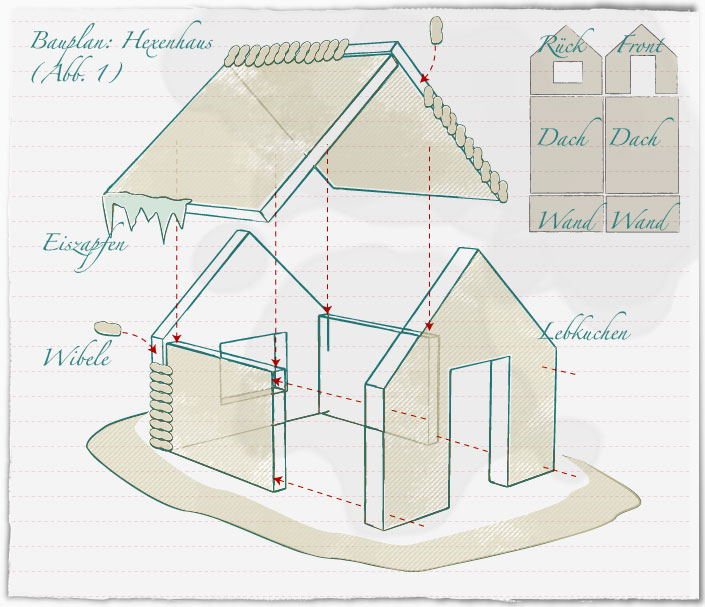 Bauplan: Hexenhaus
(Abb. 1)
Rück Front
Dach Dach
Wand Wand
Eiszapfen
Wibele
Lebkuchen